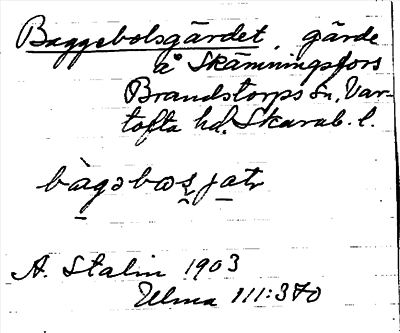 Baggebolsgärdet, gärde
å Skämningsfors
Brandstorps sn, Var-
tofta hd. Skarab. l.
bàgəbos̬jatr
A. Stalin 1903
Ulma 111:370